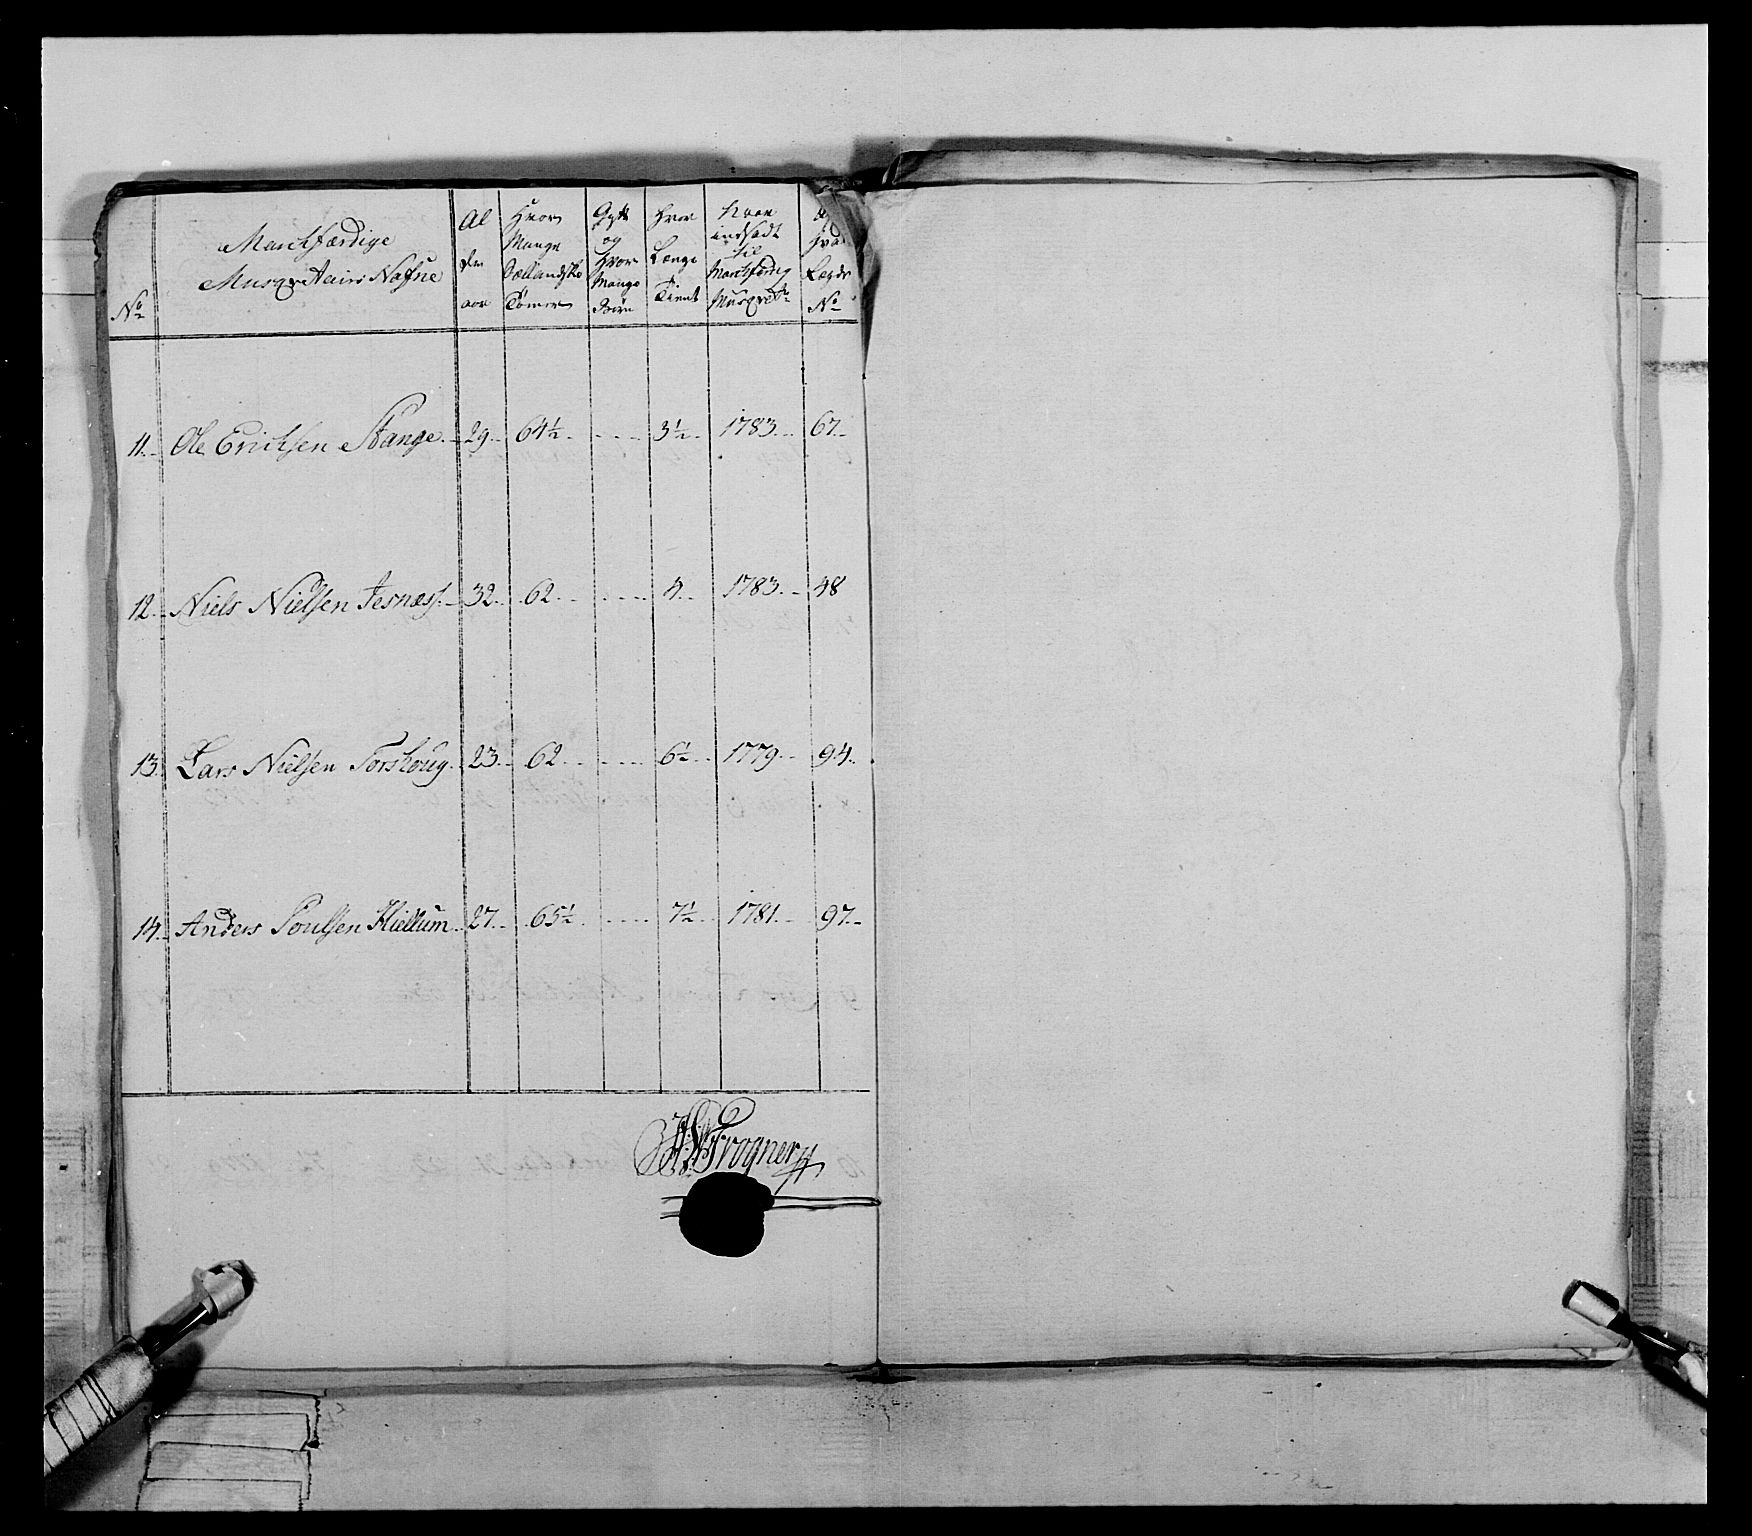 No
Marchfærdige
Musqvetairs Nafne
Al
der
aar
Hvor
Mange
Sællandske
Tomer
Gyft
og
Hvor
Mange
Børn
Hvor
Længe
Tient
Naar
indsadt
til
Marchfærdig
Musqvetr
af
hvad
Lægds
No
11. Ole Erichsen Stange. 29. 64½. 3½. 1783. 67.
12. Niels Nielsen Jesnæss. 32. 62. 4. 1783. 48
13. Lars Nielsen Torshoug. 23. 62. 6½. 1779. 94.
14. Anders Poulsen Hiellum. 27. 65½. 7½. 1781. 97.
Frogner